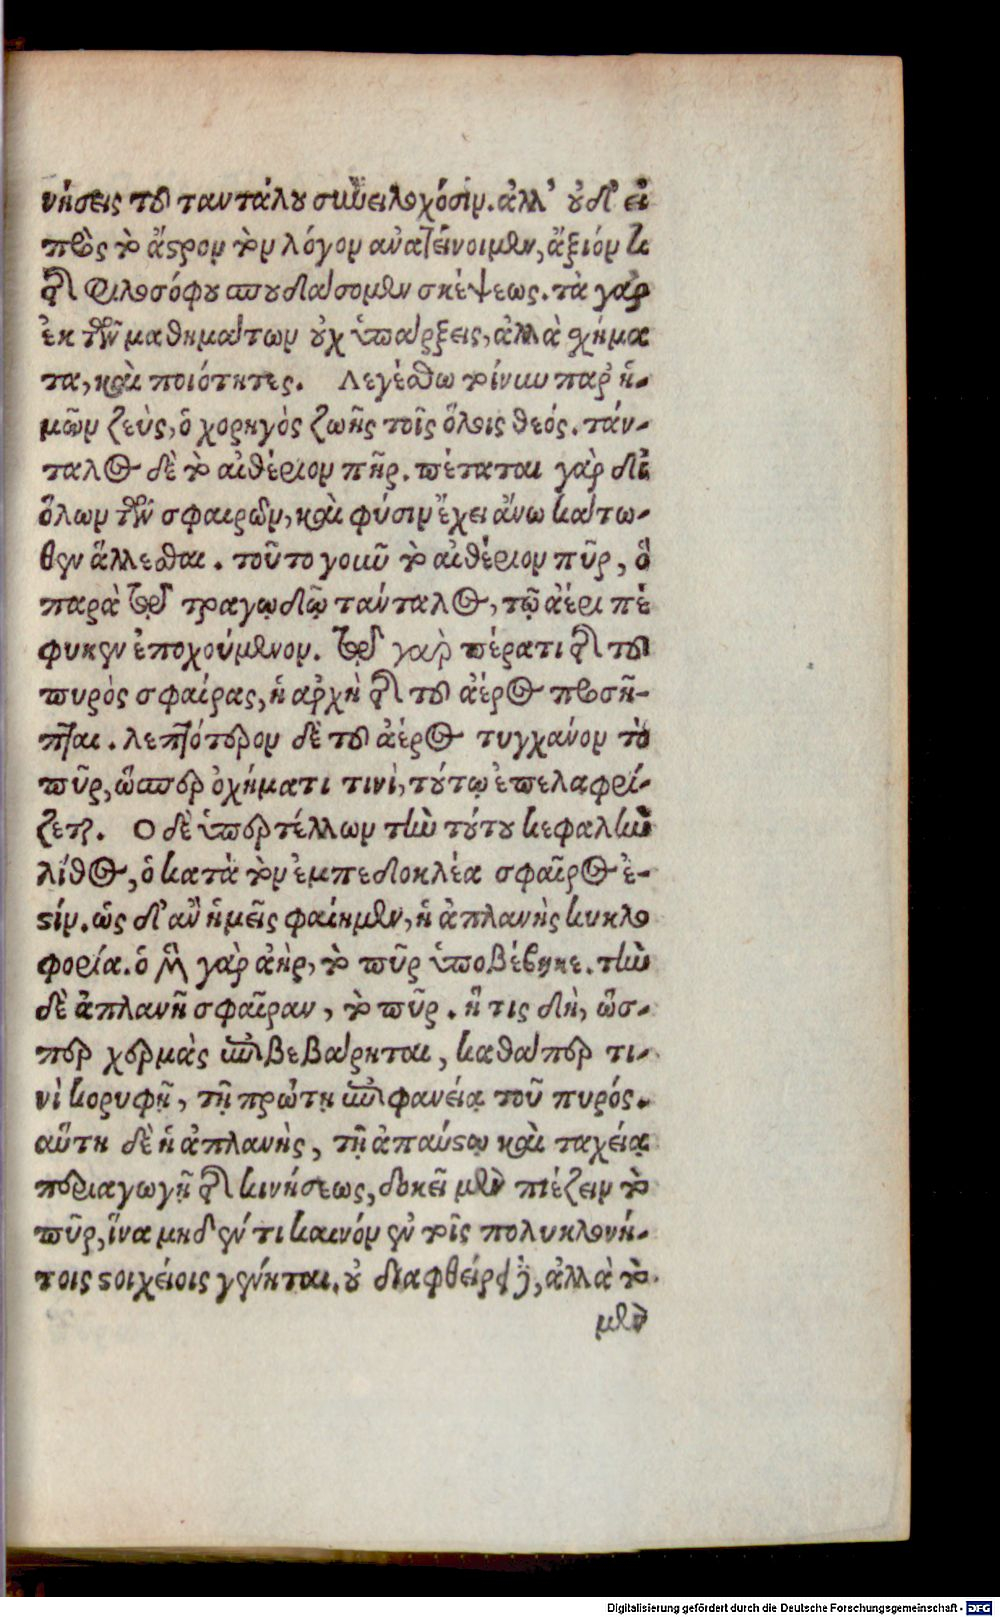 νήσεις τοῦ ταντάλου συνειλοχόσιν. ἀλλ' οὐδ' εἰ
πρὸς τὸ ἄστρον τὸν λόγον ἀνατείνοιμεν, ἄξιόν κ
τῆς φιλοσόφου σπουδάσομεν σκέψεως. τὰ γὰρ
ἐκ τῶν μαθημάτων οὐχ ὑπάρξεις, ἀλλὰ σχήμα
τα, καὶ ποιότητες. Λεγέσθω τοίνυν παρ' ἡ-
μῶν ζεὺς, ὁ χορηγὸς ζωῆς τοῖς ὅλοις θεός. τάν-
ταλος δὲ τὸ αἰθέριον πῆρ. πέταται γὰρ δι'
ὅλων τῶν σφαιρῶν, καὶ φύσιν ἔχει ἄνω κάτω-
θεν ἅλλεσθαι. τοῦτο γοιῦ τὸ αἰθέριον πῦρ, ὃ
παρὰ τῷ τραγῳδιῷ τάνταλος, τῷ ἀέρι πέ
φυκεν ἐποχούμενον. τῷ γὰρ πέρατι τῆς τοῦ
πυρὸς σφαίρας, ἡ ἀρχὴ τῆς τοῦ ἀέρος προσῆ-
πται. λεπτότερον δὲ τοῦ ἀέρος τυγχάνον τὸ
πῦρ, ὥσπερ ὀχήματι τινὶ, τούτῳ ἐπελαφρί-
ζεται. Ο δὲ ὑπερτέλλων τὴν τούτου κεφαλὴν
λίθος, ὁ κατὰ τὸν ἐμπεδοκλέα σφαῖρος ἐ-
στίν. ὡς δ' ἂν ἡμεῖς φαίημεν, ἡ ἀπλανὴς κυκλο
φορία. ὁ μὲν γὰρ ἀὴρ, τὸ πῦρ ὑποβέβηκε. τὴν
δὲ ἀπλανῆ σφαῖραν, τὸ πῦρ. ἥ τις δὴ, ὥσ-
περ χερμὰς ἐπιβεβάρηται, καθάπερ τι-
νὶ κορυφῇ, τῇ πρώτῃ ἐπιφανείᾳ τοῦ πυρός.
αὕτη δὲ ἡ ἀπλανὴς, τῇ ἀπαύστῳ καὶ ταχείᾳ
περιαγωγῇ τῆς κινήσεως, δοκεῖ μὲν πιέζειν τὸ
πῦρ, ἵνα μηδέν τι καινόν ἐν τοῖς πολυκλονή-
τοις στοιχείοις γένηται. οὐ διαφθείρει δὲ, ἀλλὰ τὸ
μὲν
Digitalisierung gefördert durch die Deutsche Forschungsgemeinschaft - DFG